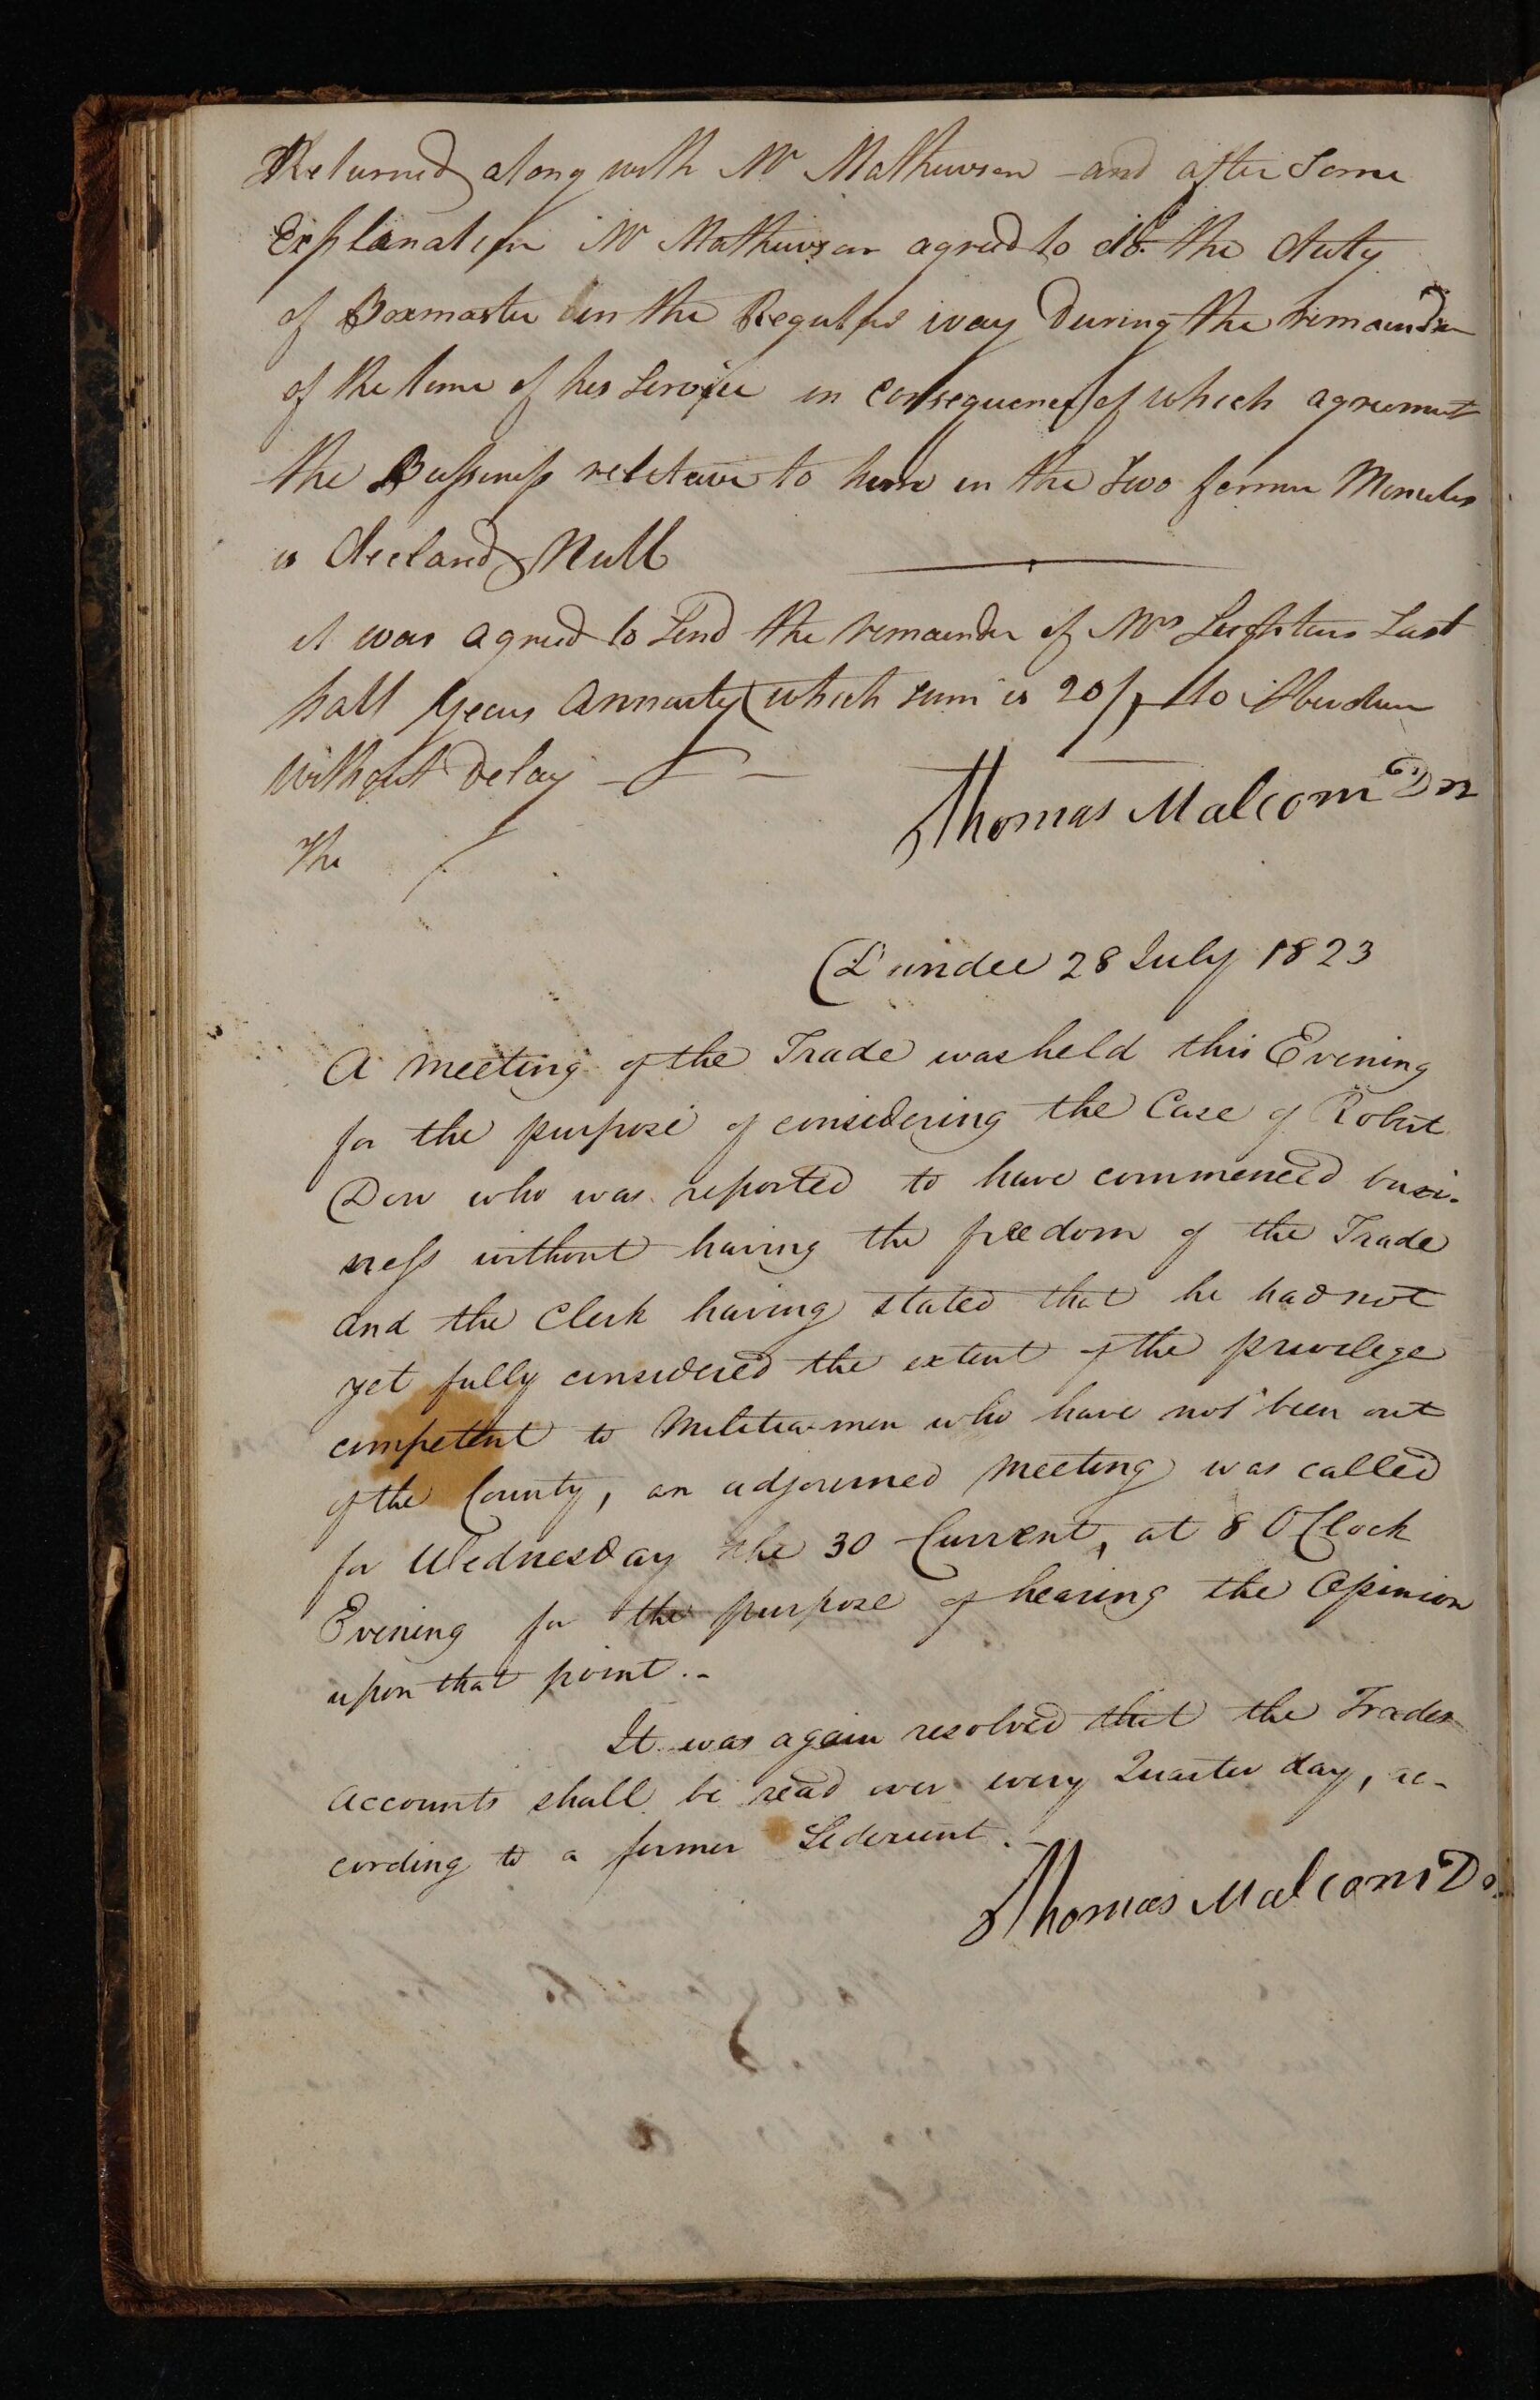 Returned along with Mr Mathewson and after Some
Explanation Mr Mathewson agreed to do the duty
of Boxmaster in the Regular way During the remainder
of the time of his Service in Consequence of which agreement
the Bussiness relitave to him in the Two former Minutes
is declared Null
it was agreed to Send the remainder of Mrs Last
half Years Annuity which sum is 20/ to Aberdeen
without Delay
The
Thomas Malcom
Dundee 28 July 1823
A meeting of the Trade was held this Evening
for the purpose of considering the Case of Robert
Dow who was reported to have commenced busi-
ness without having the freedom of the Trade
and the Clerk having stated that he had not
yet fully considered the extent of the privilege
competent to Militia-men who have not been out
of the County, an adjourned meeting was called
for Wednesday the 30 Current, at 8 OClock
Evening for the purpose of hearing the Opinion
upon that point.-
It was again resolved that the Trades
accounts shall be read over every Quarter day, ac-
cording to a former Sederunt.-
Thomas Malcom